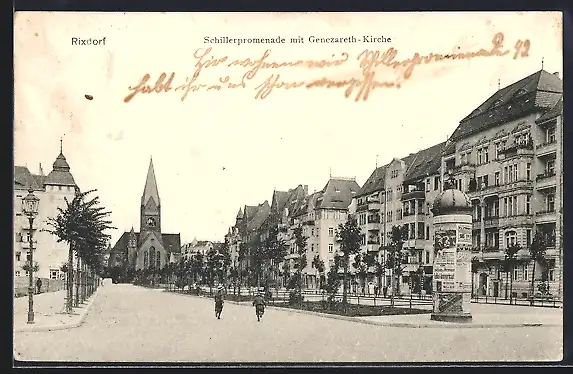 Rixdorf
Schillerpromenade mit Genezareth-Kirche
Hier wohnen wir Schillerpromenade 42
habt ihr uns schon vergessen.